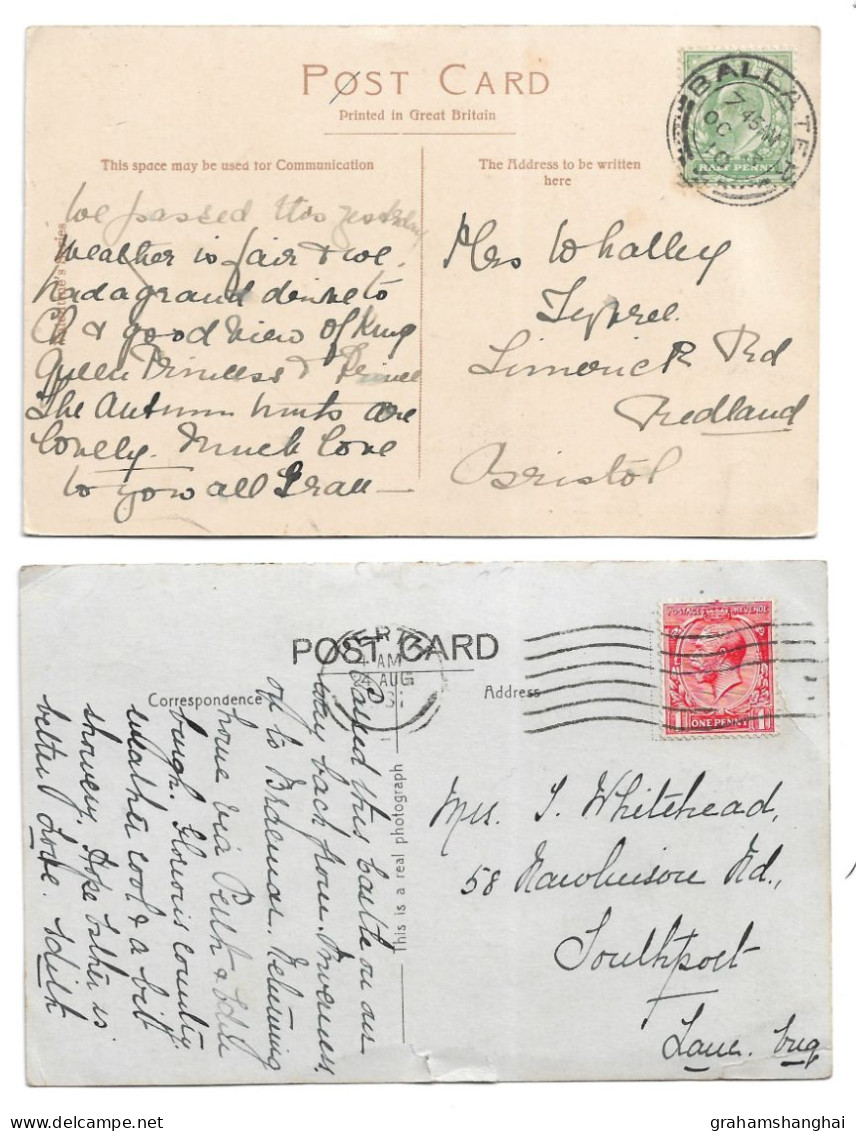 POST CARD
Printed in Great Britain
This space may be used for Communication
The Address to be written
here
BALLATER
7 45 AM
OC
10
HALF PENNY
We passed this yesterday
Weather is fair & we
had a grand drive to
& good view of King
Queen Princess & Prince
The Autumn tints are
lovely. Much love
to you all Gran
Series
Mrs Whalley
Limerick Rd
Redland
Bristol
POST CARD
PERTH
AM
AUG
POSTAGE REVENUE
1 ONE PENNY 1
Correspondence
Address
This is a real photograph
Passed this Castle on our
way back from Inverness,
off to Braemar. Returning
home via Perth & Edin
burgh. Glorious country
weather cool & a bit
showery. Hope father is
better. Love. Edith
Mrs. J. Whitehead,
58 Rawlinson Rd.,
Southport
Lanc. Eng
grahamshanghai